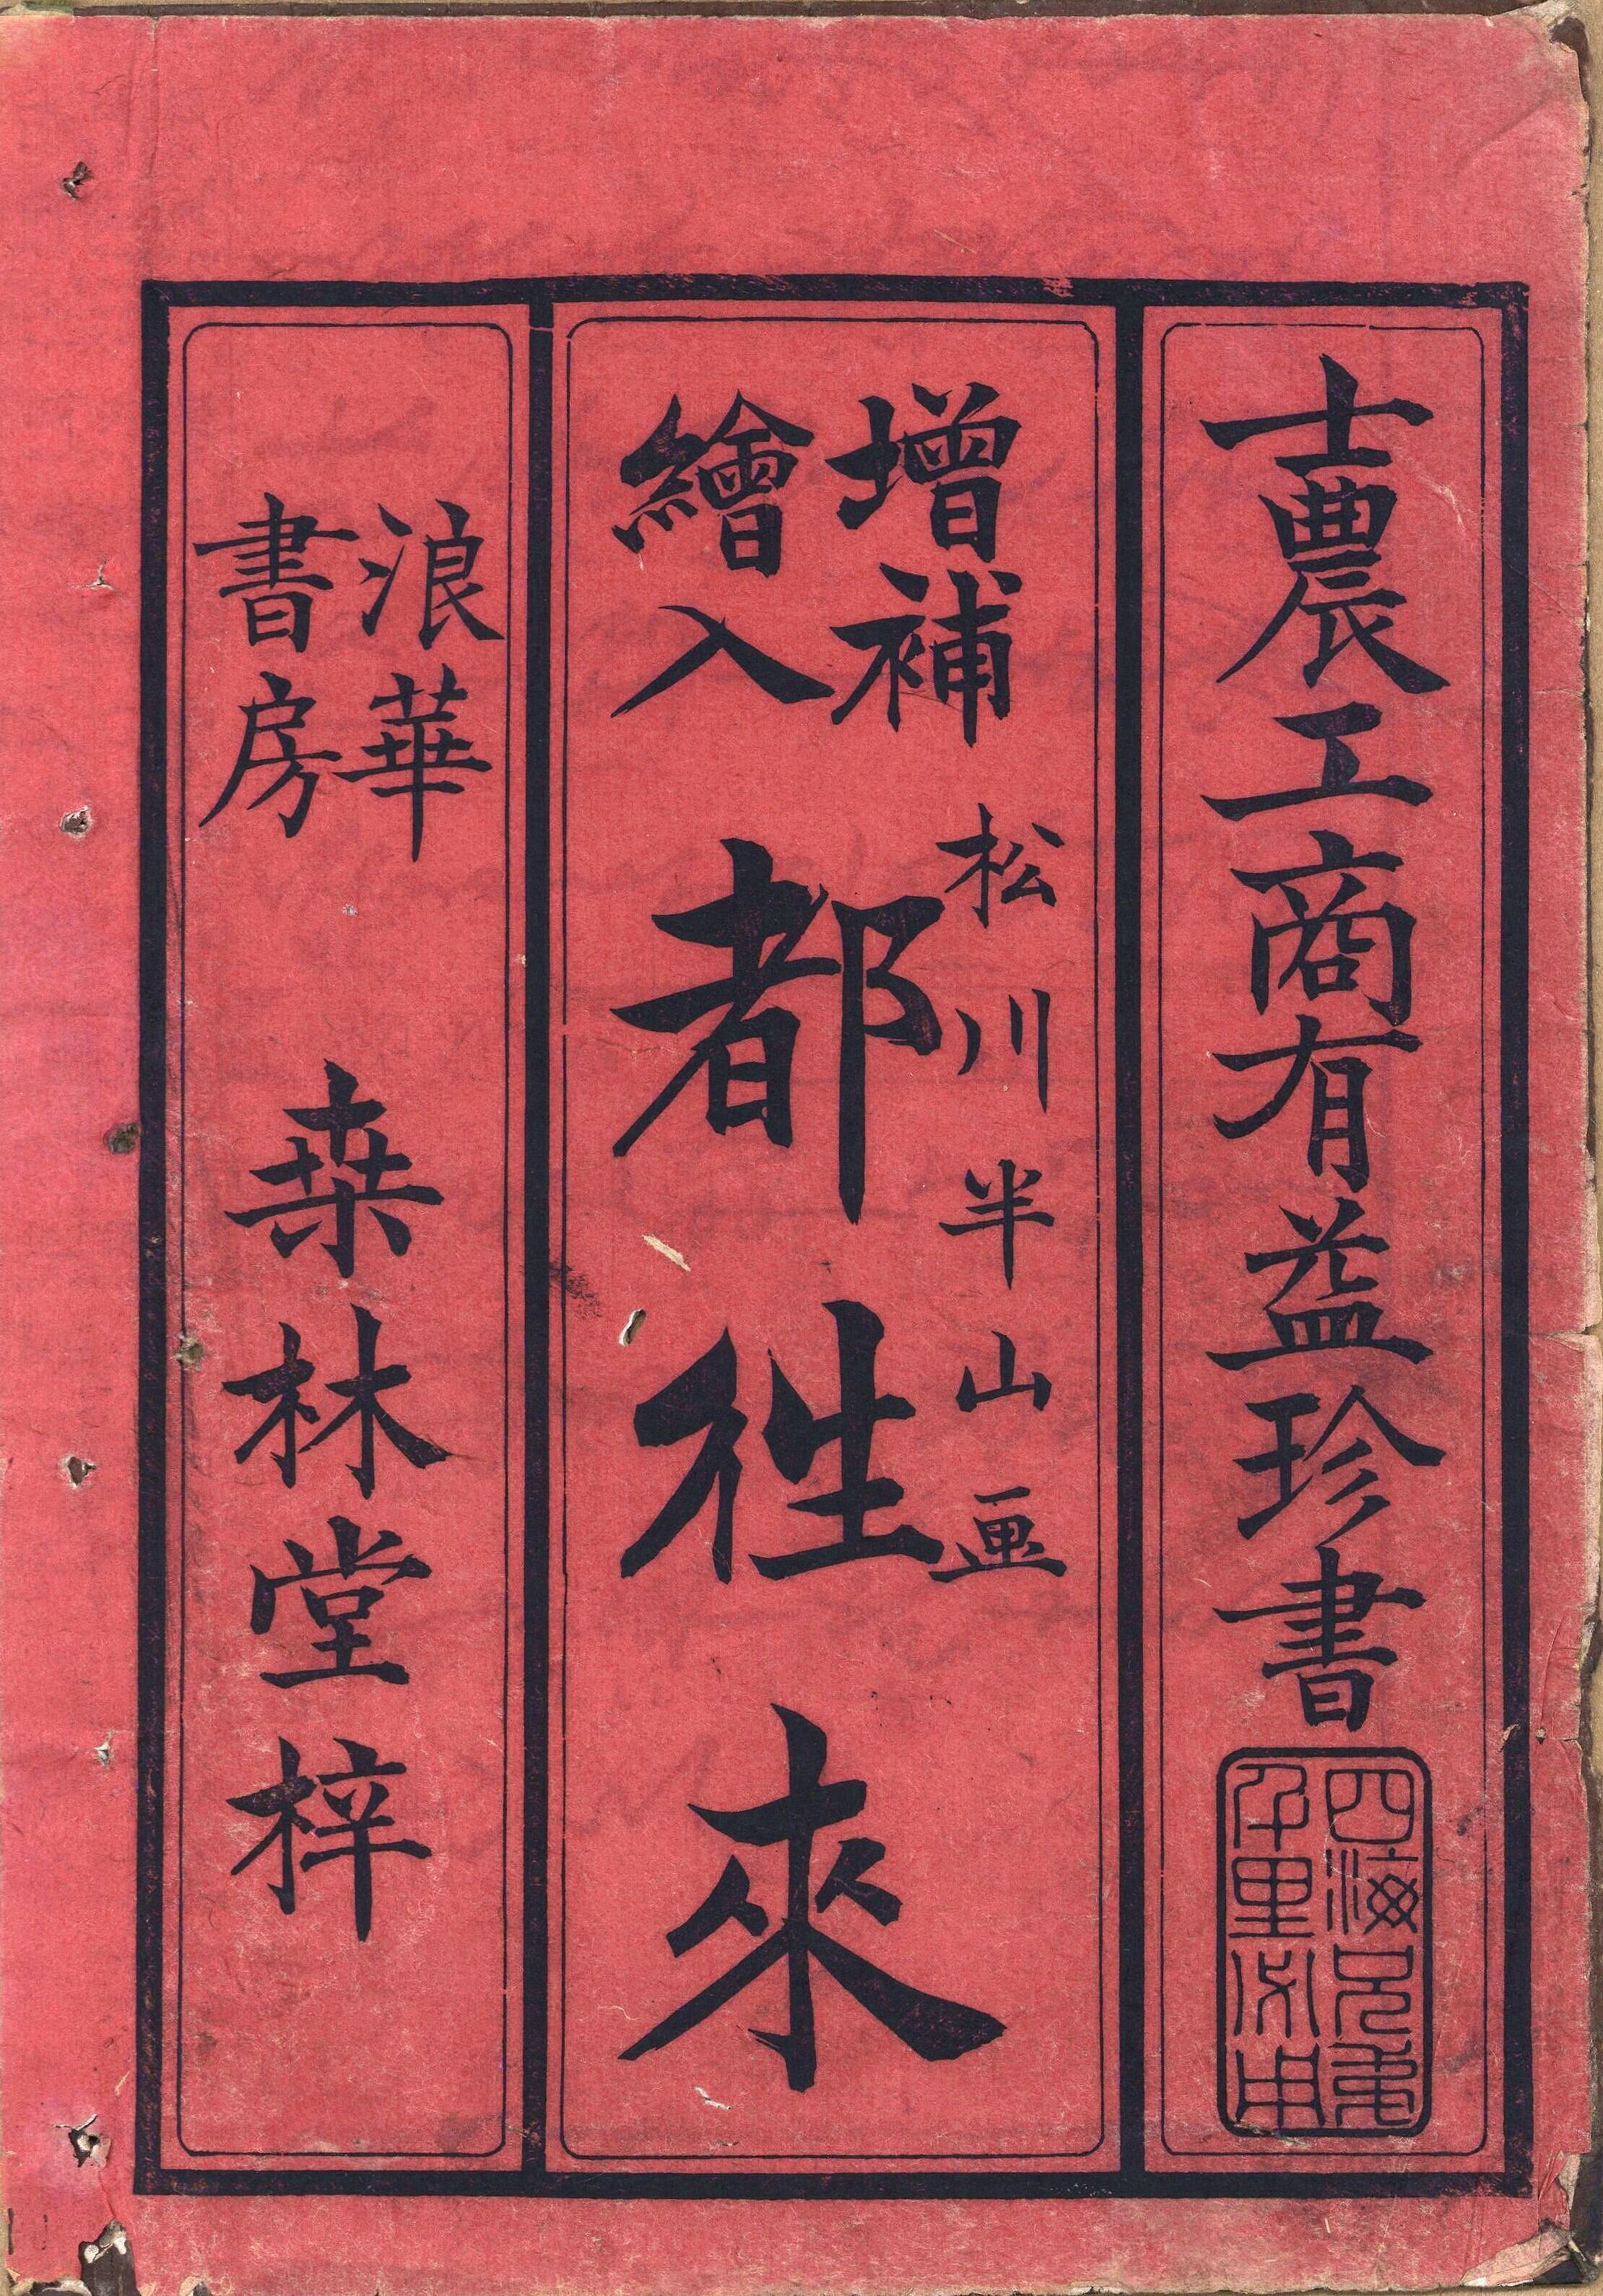 士農工商有益珍書
四海兄弟
千里
增補
繪入
松川半山画
都徃來
浪華
書房
桒林堂梓